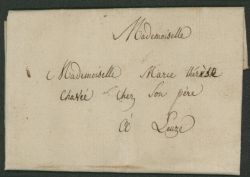 Mademoiselle
Mademoiselle Marie thérèse
Chez Son père
à Leuze